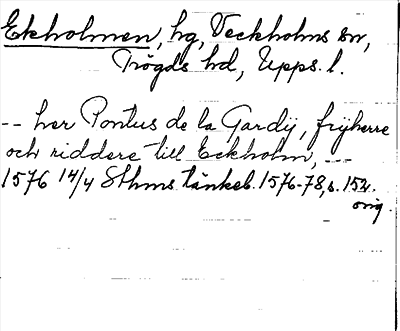 Ekholmen, hg, Veckholms sn,
Trögds hd, Upps. l.
-- her Pontus de la Gardij, frijherre
och riddere till Eckholm, --
1576 14/4 Sthms tänkeb. 1576-78, s. 152.
orig.